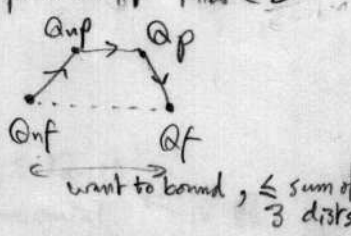 Qnp Qp
Qnf Qf
want to bound, ≤ sum of
3 dists